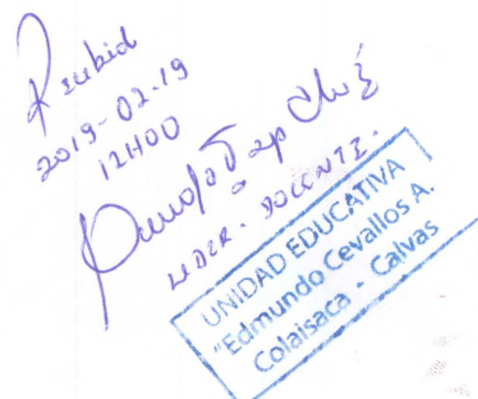 2019-02-19
12H00
LIDER. DOCENTE.
UNIDAD EDUCATIVA
"Edmundo Cevallos A.
Colaisaca - Calvas